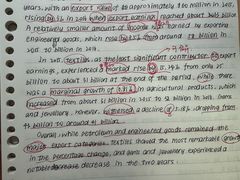 years, with an export value of to approximately 60 million in 2015,
rising by 3% in 2016 when export earnings reached about $62 billion
A relatively smaller amount of income is earned by exported
engineered goods, which rose by 8.5% from around 58 billion in
2015 to billion in 2016.
In 2015, textiles, as the least significant contributor to export
earnings, experienced a 15.24% from only 25
billion to about 31 billion at the end of the period, while there
was a marginal growth of 0.81% in agricultural products, which
increased from about 31 billion in 2015 to 32 billion in 2016. Gems
and jewellery, however, witnessed a decline of 5.18%, dropping from
43 billion to around 41 billion.
Overall, while petroleum and engineered goods remained the
major export categories, textiles showed the most remarkable growth
in the percentage change, and gems and jewellery experienced a
notable decrease in the two years.